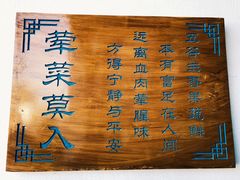 五谷果蔬鲜
本有富足在人间
远离血肉荤腥味
方得宁静与平安
荤菜莫入